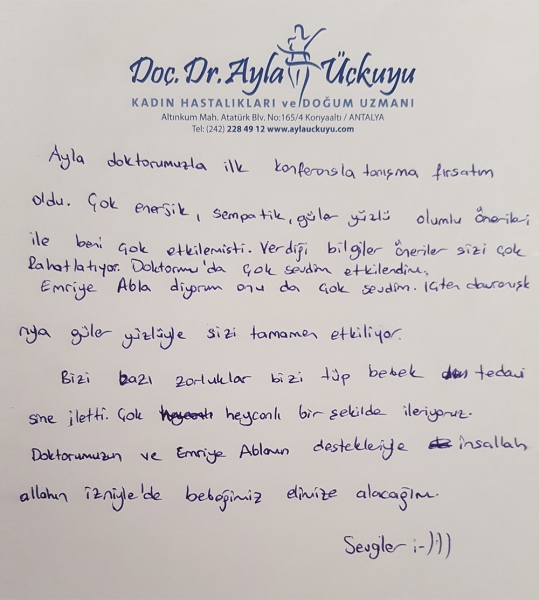 Doç. Dr. Ayla Üçkuyu
KADIN HASTALIKLARI ve DOĞUM UZMANI
Altınkum Mah. Atatürk Blv. No:165/4 Konyaaltı / ANTALYA
Tel: (242) 228 49 12 www.aylauckuyu.com
Ayla doktorumuzla ilk konferansla tanışma fırsatım
oldu. Çok enerjik, sempatik, güler yüzlü olumlu önerileri
ile beni çok etkilemişti. Verdiği bilgiler öneriler sizi çok
Rahatlatıyor. Doktorumu'da çok sevdim etkilendim,
Emriye Abla diyorum onu da çok sevdim. İçten davranışk
rıyla güler yüzlüyle sizi tamamen etkiliyor.
Bizi bazı zorluklar bizi tüp bebek tedavi
sine iletti. Çok heycanlı bir şekilde ileriyoruz.
Doktorumuzun ve Emriye Ablanın destekleriyle insallah
allahın izniyle'de bebeğimiz elimize alacağım.
Sevgiler ;-)))